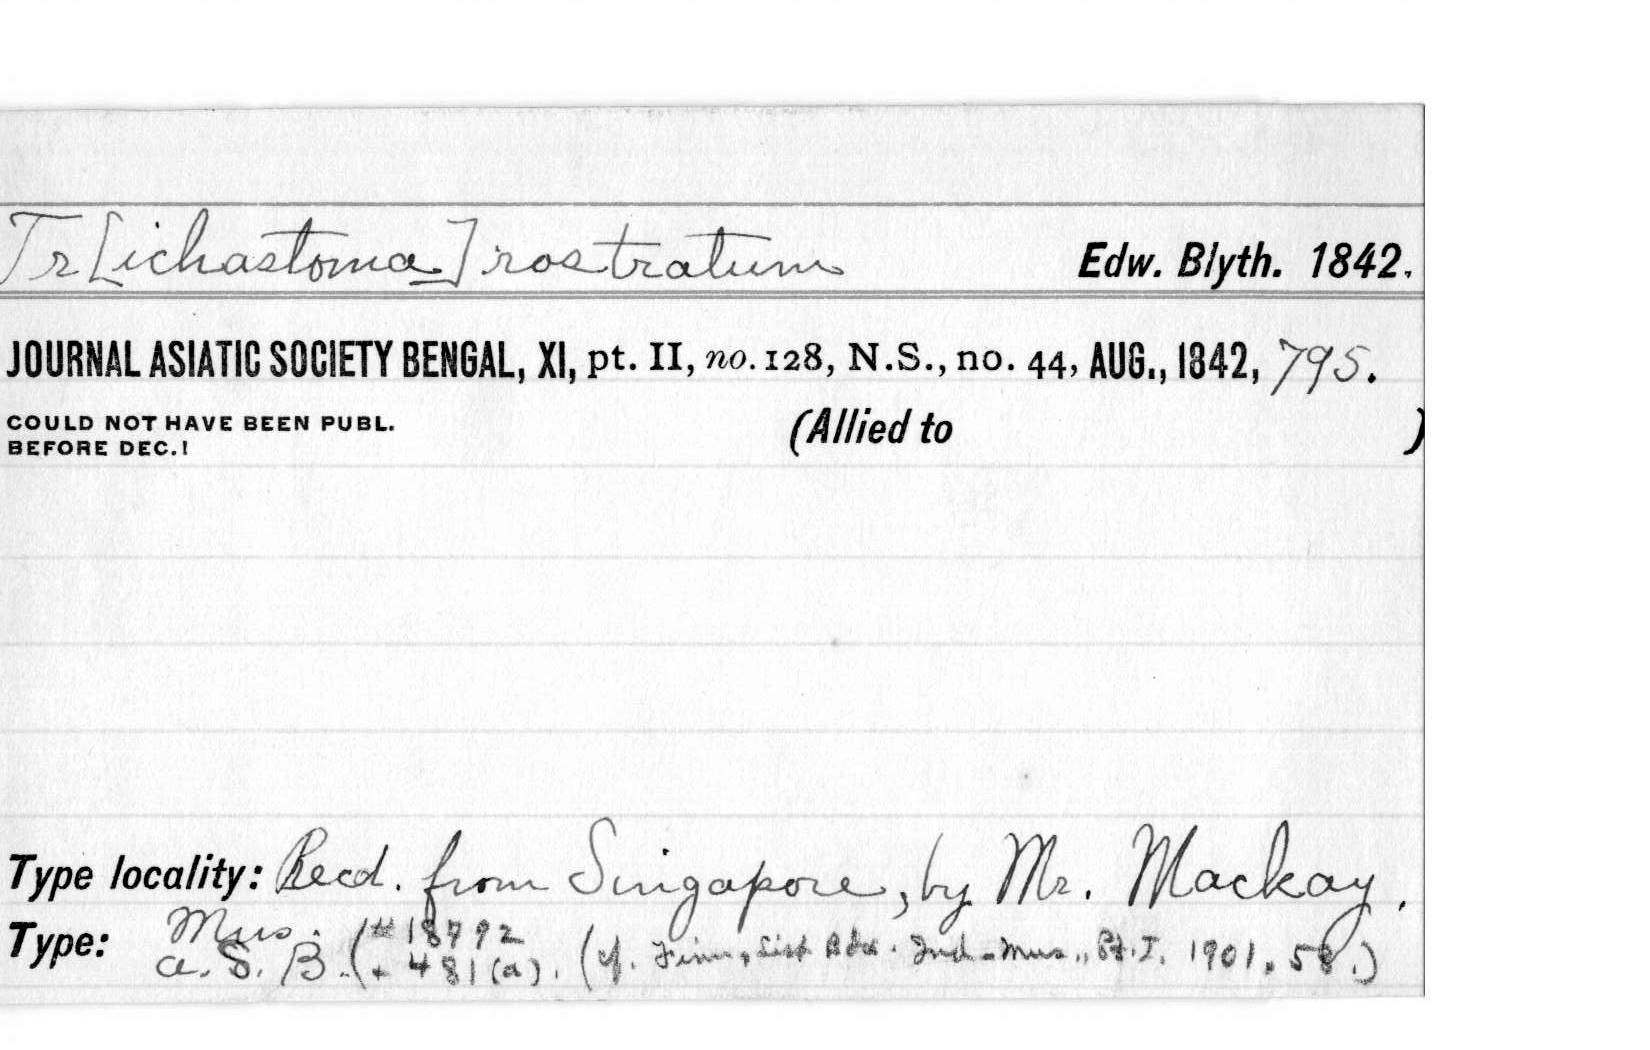 Tr[ichastoma] rostratum Edw. Blyth. 1842.
JOURNAL ASIATIC SOCIETY BENGAL, XI, pt. II, no. 128, N.S., no. 44, AUG., 1842, 795.
COULD NOT HAVE BEEN PUBL. (Allied to )
BEFORE DEC.!
Type locality: Recd. from Singapore, by Mr. Mackay.
Type: Mus. (#18792
a. S. B. + 481(a). (cf. Finn, List Bds. Ind. Mus., Pt. I. 1901, 58.)